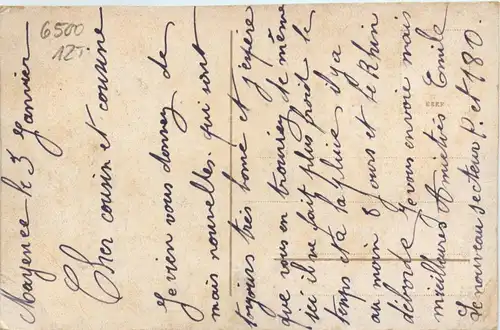 6500
12T.
Mayence le 3 Janvier
Cher cousin et cousine
Je vien vous donney de
mais nouvelles qui sont
toujours très bonne et j'espere
que vous en trouvey de même
ici il ne fait plus froid le
temps et a la pluie il y a
au moin 8 jours et le Rhin
déborde Je vous envoie mais
meilleures Amitiés Emile
Le nouveau secteur P. et 180.